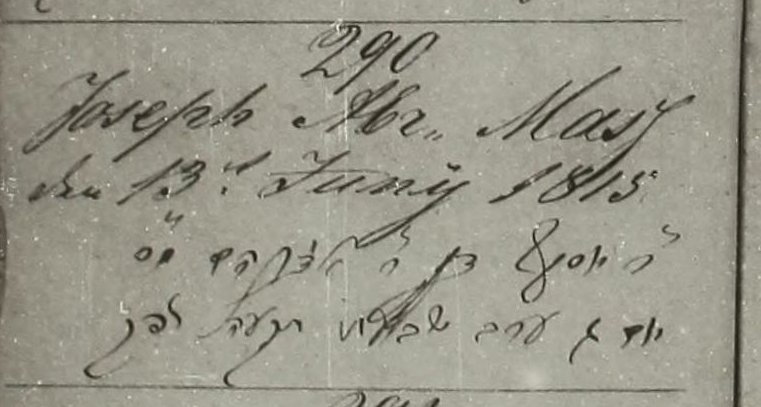 290
Joseph Abr. Mass
den 13t Juny 1815
ר' יוסף בן ר' אברהם מס
יום ג ערב שבועות תקעה לפק